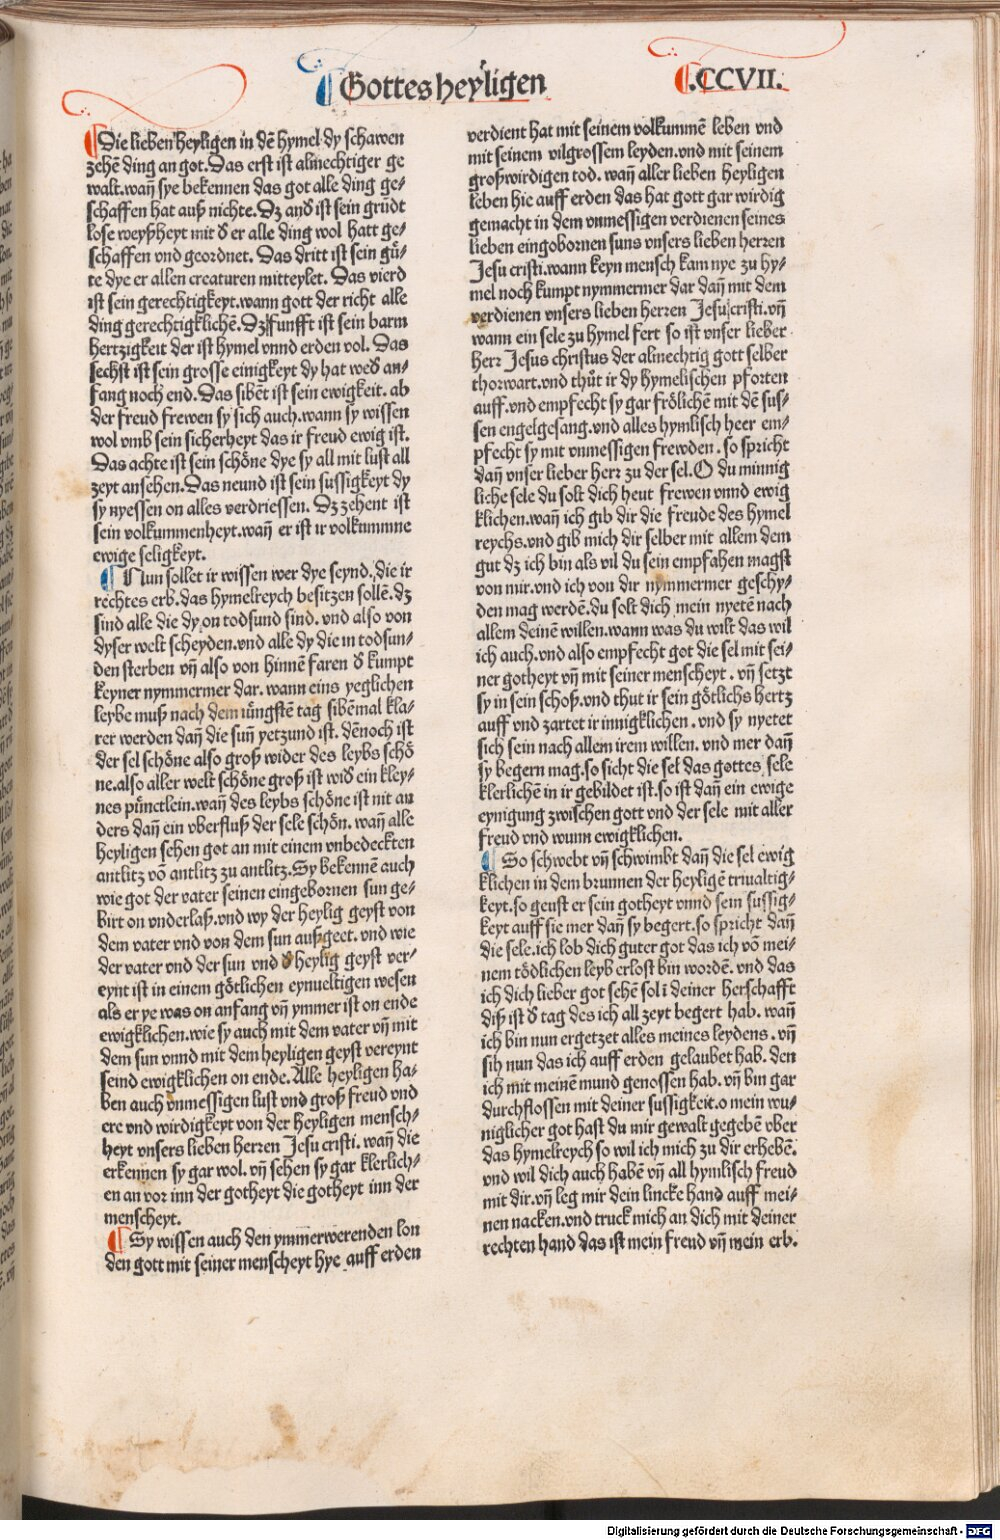 Gottes heyligen
.CCVII.
Die lieben heyligen in dē hymel dy schawen
zehē ding an got. Das erst ist almechtiger ge
walt. wañ sye bekennen das got alle ding ge-
schaffen hat auß nichte. Dz and ist sein grūdt
lose weyßheyt mit d̄ er alle ding wol hatt ge-
schaffen vnd geordnet. Das dritt ist sein gü-
te dye er allen creaturen mitteylet. Das vierd
ist sein gerechtigkeyt. wann gott der richt alle
ding gerechtigklichē. Dz funfft ist sein barm
hertzigkeit der ist hymel vnnd erden vol. Das
sechst ist sein grosse einigkeyt dy hat wed̄ an-
fang noch end. Das sibēt ist sein ewigkeit. ab
der freud frewen sy sich auch. wann sy wissen
wol vmb sein sicherheyt das ir freud ewig ist.
Das achte ist sein schöne dye sy all mit lust all
zeyt ansehen. Das neund ist sein sussigkeyt dy
sy nyessen on alles verdriessen. Dz zehent ist
sein volkummenheyt. wañ er ist ir volkummne
ewige seligkeyt.
Nun sollet ir wissen wer dye seynd. die ir
rechtes erb. das hymelreych besitzen sollē. dz
sind alle die dy on todsund sind. vnd also von
dyser welt scheyden. vnd alle dy die in todsun-
den sterben vñ also von hinnē faren d̄ kumpt
keyner nymmermer dar. wann eins yeglichen
leybe muß nach dem iüngstē tag sibēmal kla-
rer werden dañ die suñ yetzund ist. dēnoch ist
der sel schöne also groß wider des leybs schö
ne. also aller welt schöne groß ist wid̄ ein kley-
nes pünctlein. wañ des leybs schöne ist nit an
ders dañ ein vberfluß der sele schön. wañ alle
heyligen sehen got an mit einem vnbedeckten
antlitz vō antlitz zu antlitz. Sy bekennē auch
wie got der vater seinen eingebornen sun ge-
birt on vnderlaß. vnd wy der heylig geyst von
dem vater vnd von dem sun außgeet. vnd wie
der vater vnd der sun vnd d̄ heylig geyst ver-
eynt ist in einem götlichen eynueltigen wesen
als er ye was on anfang vñ ymmer ist on ende
ewigklichen. wie sy auch mit dem vater vñ mit
dem sun vnnd mit dem heyligen geyst vereynt
seind ewigklichen on ende. Alle heyligen ha-
ben auch vnmessigen lust vnd groß freud vnd
ere vnd wirdigkeyt von der heyligen mensch-
heyt vnsers lieben herren Jesu cristi. wañ die
erkennen sy gar wol. vñ sehen sy gar klerlich-
en an vor inn der gotheyt die gotheyt inn der
menscheyt.
Sy wissen auch den ymmerwerenden lon
den gott mit seiner menscheyt hye auff erden
verdient hat mit seinem volkummē leben vnd
mit seinem vilgrossem leyden. vnd mit seinem
großwirdigen tod. wañ aller lieben heyligen
leben hie auff erden das hat gott gar wirdig
gemacht in dem vnmessigen verdienen seines
lieben eingebornen suns vnsers lieben herren
Jesu cristi. wann keyn mensch kam nye zu hy-
mel noch kumpt nymmermer dar dañ mit dem
verdienen vnsers lieben herren Jesu cristi. vñ
wann ein sele zu hymel fert so ist vnser lieber
herr Jesus christus der almechtig gott selber
thorwart. vnd thüt ir dy hymelischen pforten
auff. vnd empfecht sy gar frölichē mit dē sus-
sen engelgesang. vnd alles hymlisch heer em-
pfecht sy mit vnmessigen frewden. so spricht
dañ vnser lieber herr zu der sel. O du minnig
liche sele du solt dich heut frewen vnnd ewig
klichen. wañ ich gib dir die freude des hymel
reychs. vnd gib mich dir selber mit allem dem
gut dz ich bin als vil du sein empfahen magst
von mir. vnd ich von dir nymmermer geschy-
den mag werdē. du solt dich mein nyetē nach
allem deinē willen. wann was du wilt das wil
ich auch. vnd also empfecht got die sel mit sei-
ner gotheyt vñ mit seiner menscheyt. vñ setzt
sy in sein schoß. vnd thut ir sein götlichs hertz
auff vnd zartet ir innigklichen. vnd sy nyetet
sich sein nach allem irem willen. vnd mer dañ
sy begern mag. so sicht die sel das gottes sele
klerlichē in ir gebildet ist. so ist dañ ein ewige
eynigung zwischen gott vnd der sele mit aller
freud vnd wunn ewigklichen.
So schwebt vñ schwimbt dañ die sel ewig
klichen in dem brunnen der heyligē triualtig-
keyt. so geust er sein gotheyt vnnd sein sussig-
keyt auff sie mer dañ sy begert. so spricht dañ
die sele. ich lob dich guter got das ich vō mei-
nem tödlichen leyb erlost bin wordē. vnd das
ich dich lieber got sehē sol ī deiner herschafft
diß ist d̄ tag des ich all zeyt begert hab. wañ
ich bin nun ergetzet alles meines leydens. vñ
sih nun das ich auff erden gelaubet hab. den
ich mit meinē mund genossen hab. vñ bin gar
durchflossen mit deiner sussigkeit. o mein wu-
niglicher got hast du mir gewalt gegebē vber
das hymelreych so wil ich mich zu dir erhebē.
vnd wil dich auch habē vñ all hymlisch freud
mit dir. vñ leg mir dein lincke hand auff mei-
nen nacken. vnd truck mich an dich mit deiner
rechten hand das ist mein freud vñ mein erb.
Digitalisierung gefördert durch die Deutsche Forschungsgemeinschaft - DFG